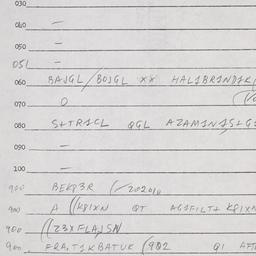 030
040 —
050 —
051 —
060 BAJGL/BOJGL XX HAL1BR1ND1K(
070 O
080 S+TR1CL QGL AZAM1N1S+G
090 —
100 —
900 BEKP3R
900 A ((KP1XN QT AG1F1LT+ KP1XN
900 ((Z3XFLAJSN
900 FRA,T1KBATUK (902 Q1 AFT